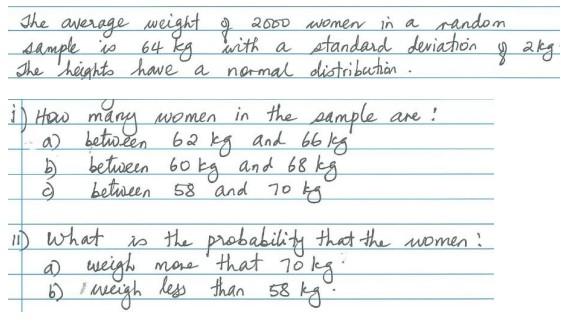 The average weight of 2000 women in a random
sample is 64 kg with a standard deviation of 2kg
The heights have a normal distribution.
i) How many women in the sample are :
a) between 62 kg and 66 kg
b) between 60 kg and 68 kg
c) between 58 and 70 kg
ii) What is the probability that the women :
a) weigh more that 70 kg.
b) weigh less than 58 kg.